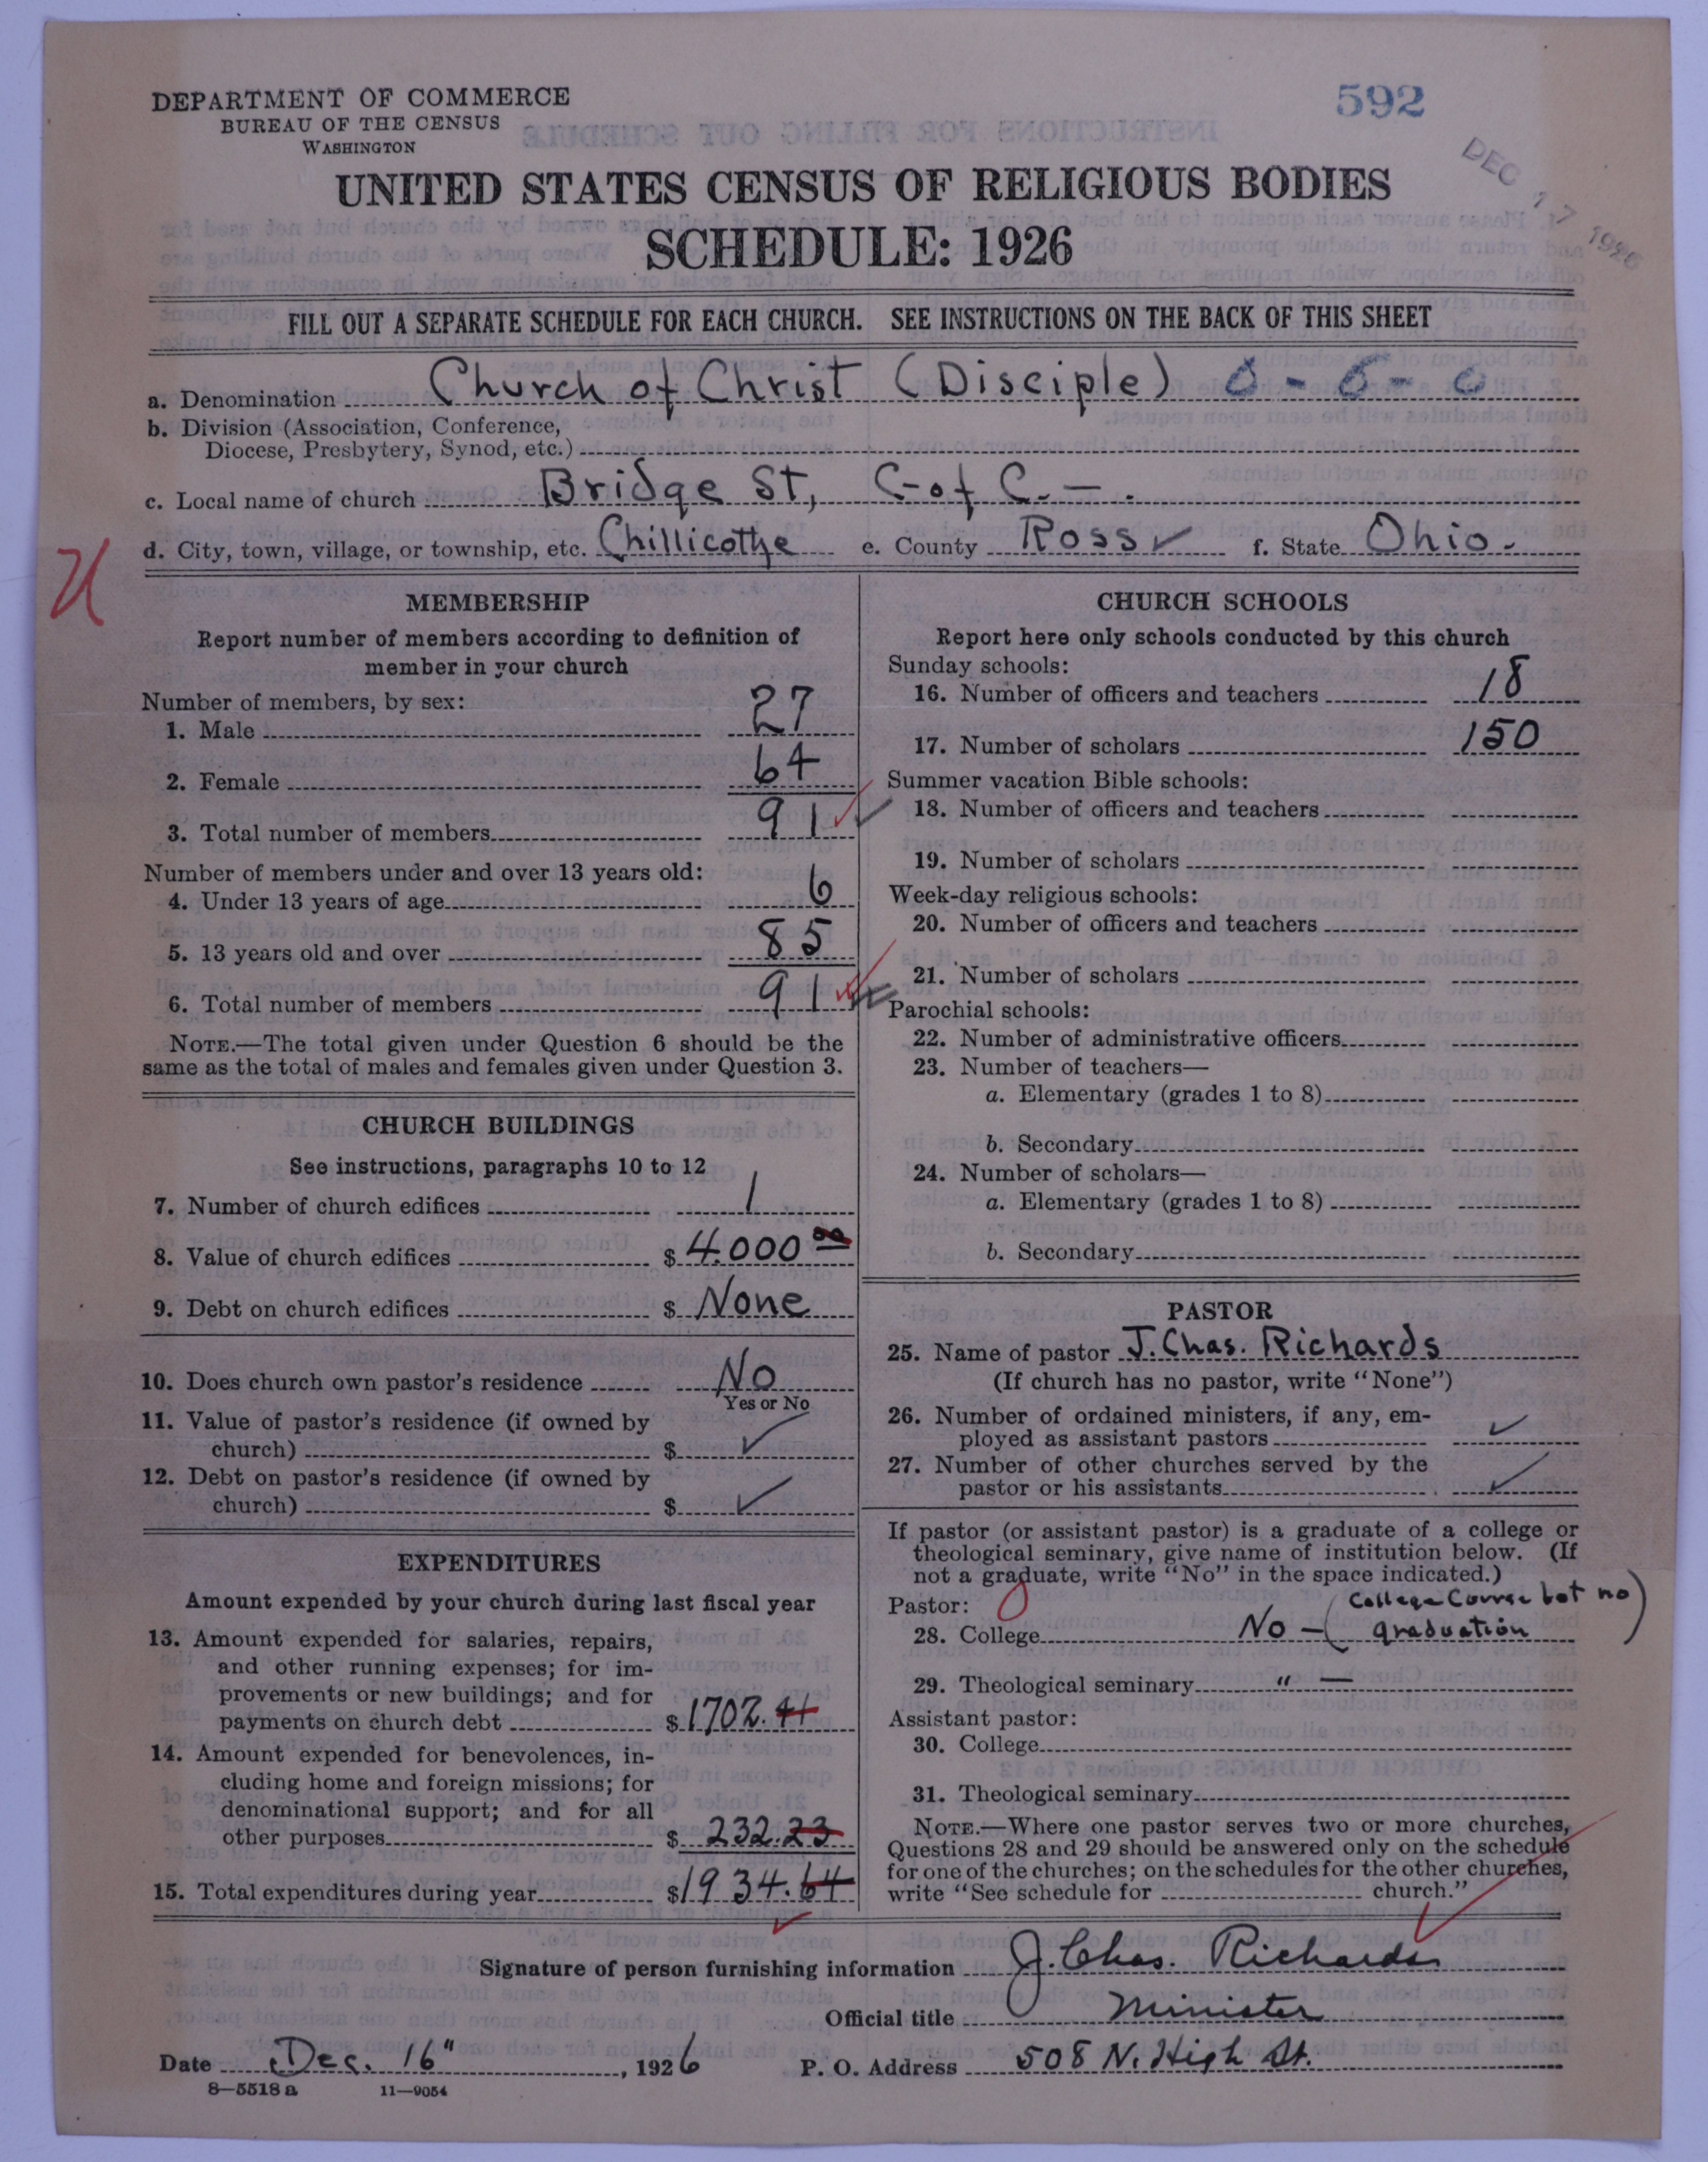 DEPARTMENT OF COMMERCE
BUREAU OF THE CENSUS
WASHINGTON
592
DEC 17 1926
UNITED STATES CENSUS OF RELIGIOUS BODIES
SCHEDULE: 1926
FILL OUT A SEPARATE SCHEDULE FOR EACH CHURCH. SEE INSTRUCTIONS ON THE BACK OF THIS SHEET
a. Denomination Church of Christ (Disciple)
b. Division (Association, Conference,
Diocese, Presbytery, Synod, etc.)
c. Local name of church Bridge St, C-of C. -.
d. City, town, village, or township, etc. Chillicothe e. County Ross f. State Ohio.
MEMBERSHIP
Report number of members according to definition of
member in your church
Number of members, by sex:
1. Male 27
2. Female 64
3. Total number of members 91
Number of members under and over 13 years old:
4. Under 13 years of age 6
5. 13 years old and over 85
6. Total number of members 91
NOTE.—The total given under Question 6 should be the
same as the total of males and females given under Question 3.
CHURCH BUILDINGS
See instructions, paragraphs 10 to 12
7. Number of church edifices 1
8. Value of church edifices $ 4.000 00
9. Debt on church edifices $ None
10. Does church own pastor's residence No
Yes or No
11. Value of pastor's residence (if owned by
church) $ ✓
12. Debt on pastor's residence (if owned by
church) $ ✓
EXPENDITURES
Amount expended by your church during last fiscal year
13. Amount expended for salaries, repairs,
and other running expenses; for im-
provements or new buildings; and for
payments on church debt $ 1702.41
14. Amount expended for benevolences, in-
cluding home and foreign missions; for
denominational support; and for all
other purposes $ 232.23
15. Total expenditures during year $ 1934.64
CHURCH SCHOOLS
Report here only schools conducted by this church
Sunday schools:
16. Number of officers and teachers 18
17. Number of scholars 150
Summer vacation Bible schools:
18. Number of officers and teachers
19. Number of scholars
Week-day religious schools:
20. Number of officers and teachers
21. Number of scholars
Parochial schools:
22. Number of administrative officers
23. Number of teachers—
a. Elementary (grades 1 to 8)
b. Secondary
24. Number of scholars—
a. Elementary (grades 1 to 8)
b. Secondary
PASTOR
25. Name of pastor J. Chas. Richards
(If church has no pastor, write "None")
26. Number of ordained ministers, if any, em-
ployed as assistant pastors ✓
27. Number of other churches served by the
pastor or his assistants ✓
If pastor (or assistant pastor) is a graduate of a college or
theological seminary, give name of institution below. (If
not a graduate, write "No" in the space indicated.)
Pastor:
28. College No - (College Course bot no
graduation)
29. Theological seminary " —
Assistant pastor:
30. College
31. Theological seminary
NOTE.—Where one pastor serves two or more churches,
Questions 28 and 29 should be answered only on the schedule
for one of the churches; on the schedules for the other churches,
write "See schedule for church."
Signature of person furnishing information J. Chas. Richards
Official title Minister
Date Dec. 16", 1926 P. O. Address 508 N. High St.
8—5518 a 11—9054